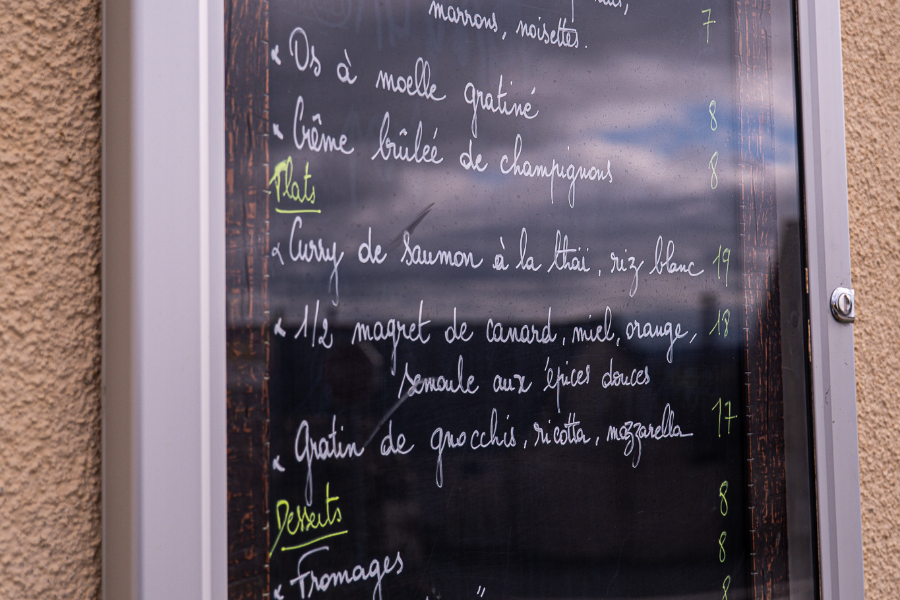 marrons, noisettes. 7
Os à moelle gratiné 8
Crême brûlée de champignons 8
Plats
Curry de saumon à la thaï, riz blanc 19
1/2 magret de canard, miel, orange, 18
semoule aux épices douces
Gratin de gnocchis, ricotta, mozzarella 17
Desserts 8
Fromages 8
" 8